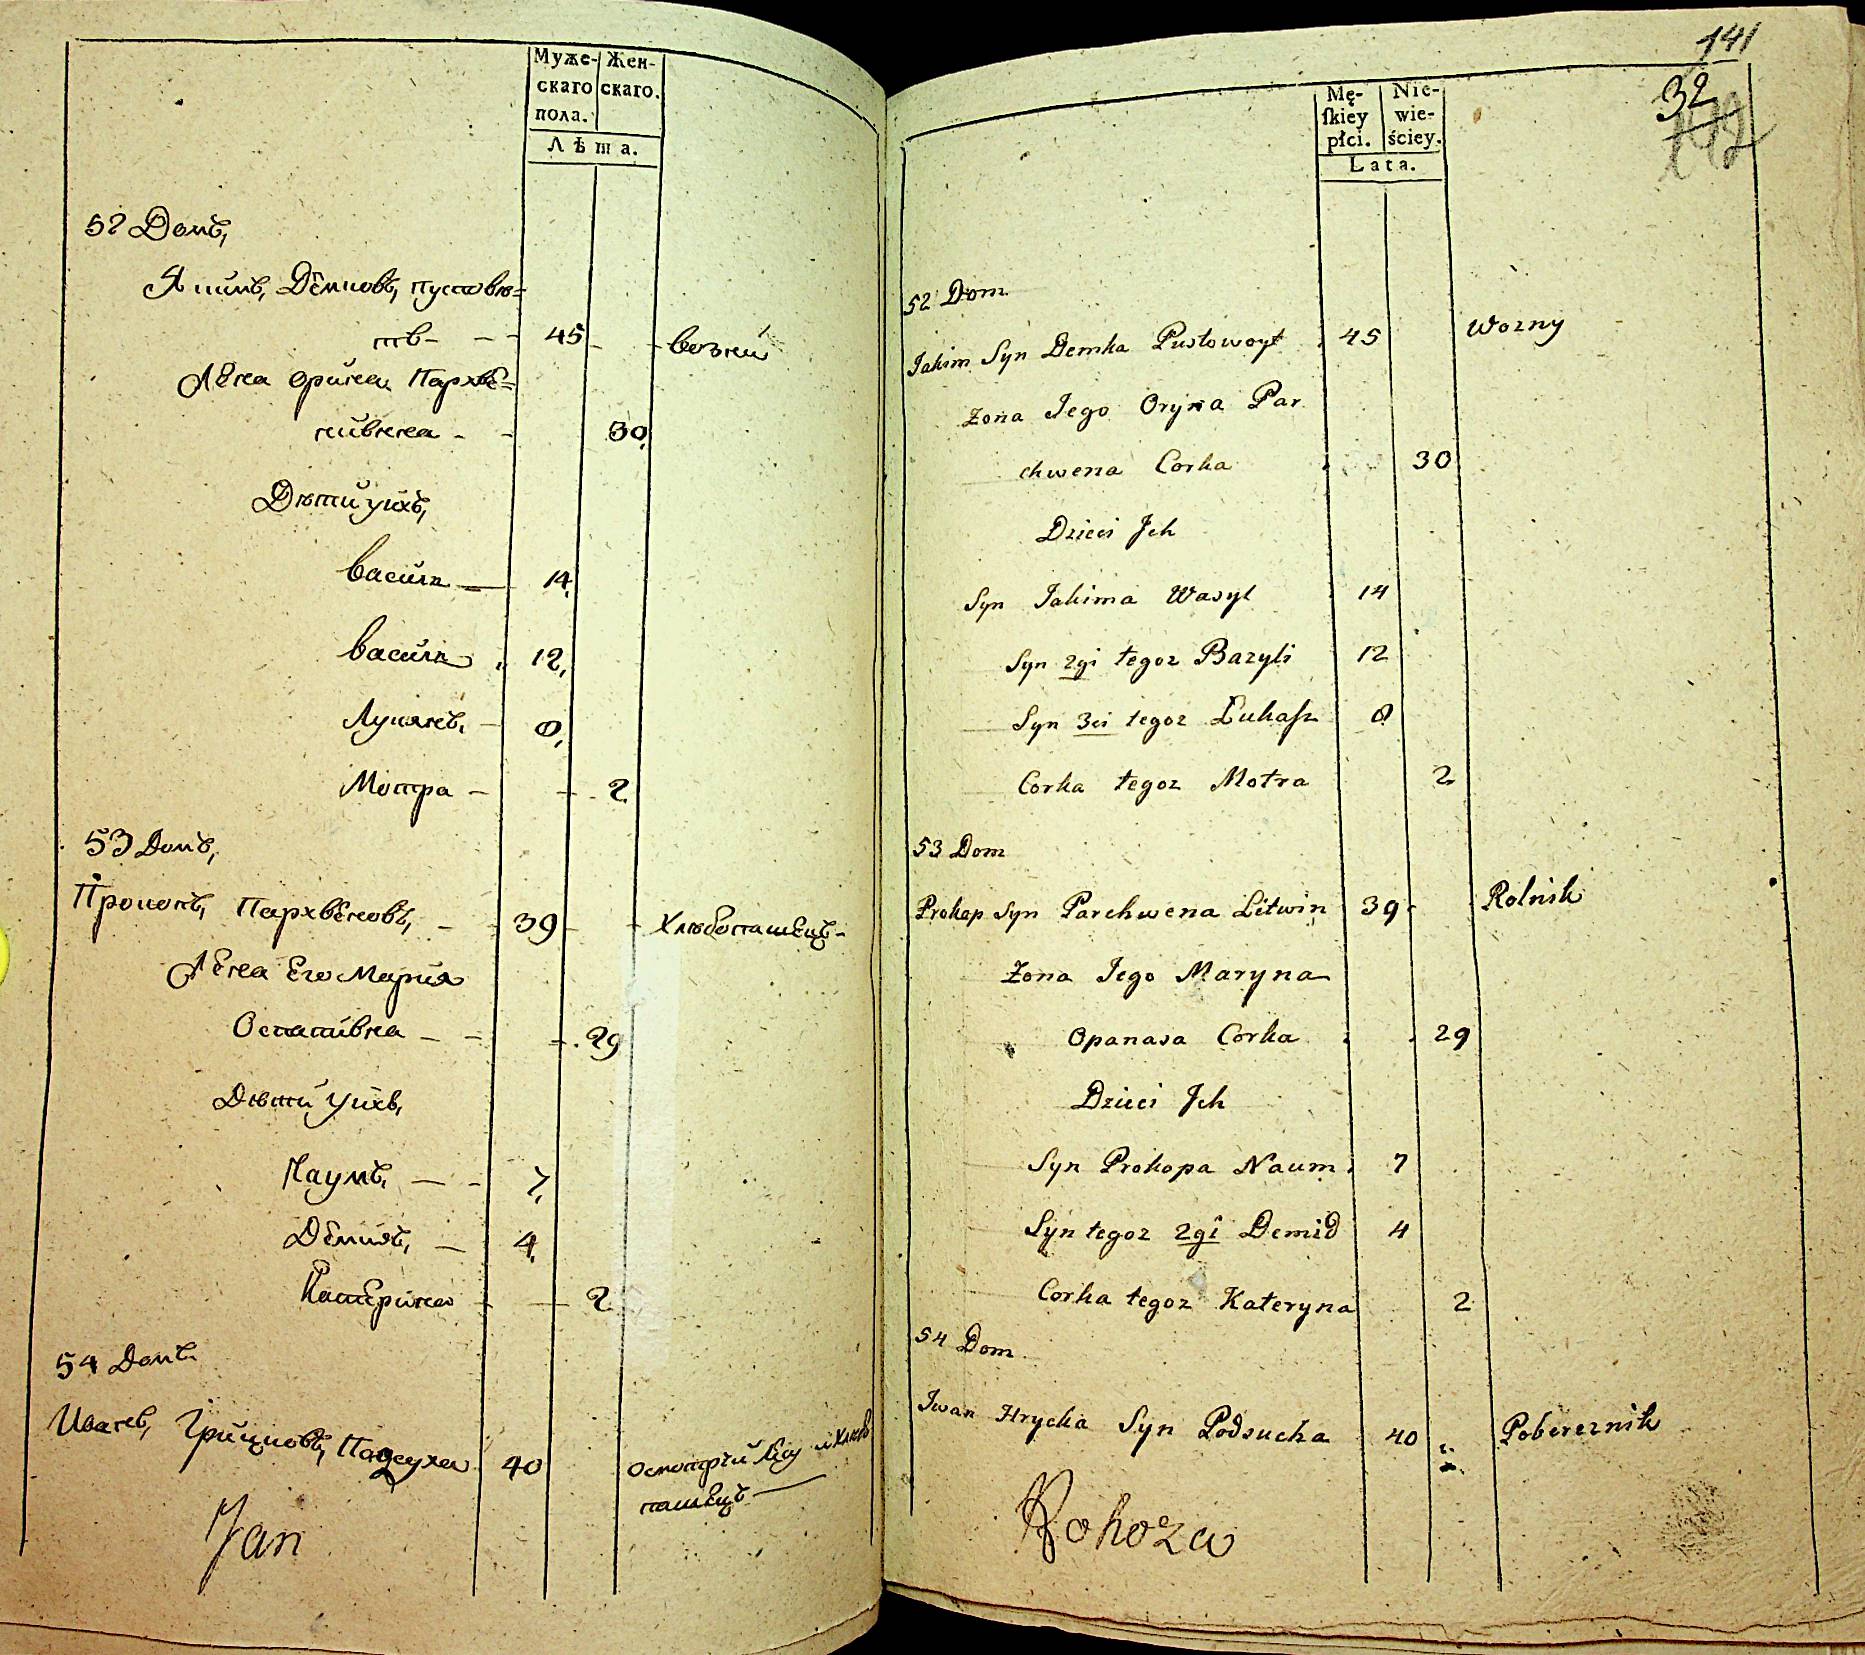 Муже-
скаго
пола.
Жен-
скаго.
Лѣта.
52 Домъ,
Якимъ, Демковъ, пустово-
тъ - - 45 - возній
Жена Орина Пархве-
нивна - - 30,
Дѣти ихъ,
василь — 14,
василь 12,
Лукянъ, - 8,
Мотра - - 2
53 Домъ,
Прокопъ, Пархвеновъ, - 39 - хлѣбопашецъ -
Жена Его Мария
Остапивна - - 29
Дѣти ихъ,
Наумъ, — - 7,
Демидъ, — 4,
Катерина - — 2
54 Домъ
Иванъ, Грицковъ, Падсуха 40
пашецъ —
Jan
141
32
142
Mę-
ſkiey
płci.
Nie-
wie-
ściey.
Lata.
52 Dom
Jakim Syn Demka Pustowoyt 45 Wozny
Zona Jego Oryna Par
chwena Corka 30
Dzieci Jch
Syn Jakima Wasyl 14
Syn 2gi tegoz Bazyli 12
Syn 3ci tegoz Łukaſz 8
Corka tegoz Motra 2
53 Dom
Prokop Syn Parchwena Litwin 39 Rolnik
Zona Jego Maryna
Opanasa Corka 29
Dzieci Jch
Syn Prokopa Naum 7
Syn tegoz 2gi Demid 4
Corka tegoz Kateryna 2
54 Dom
Jwan Hrycka Syn Podsucha 40 Pobereznik
Rohoza